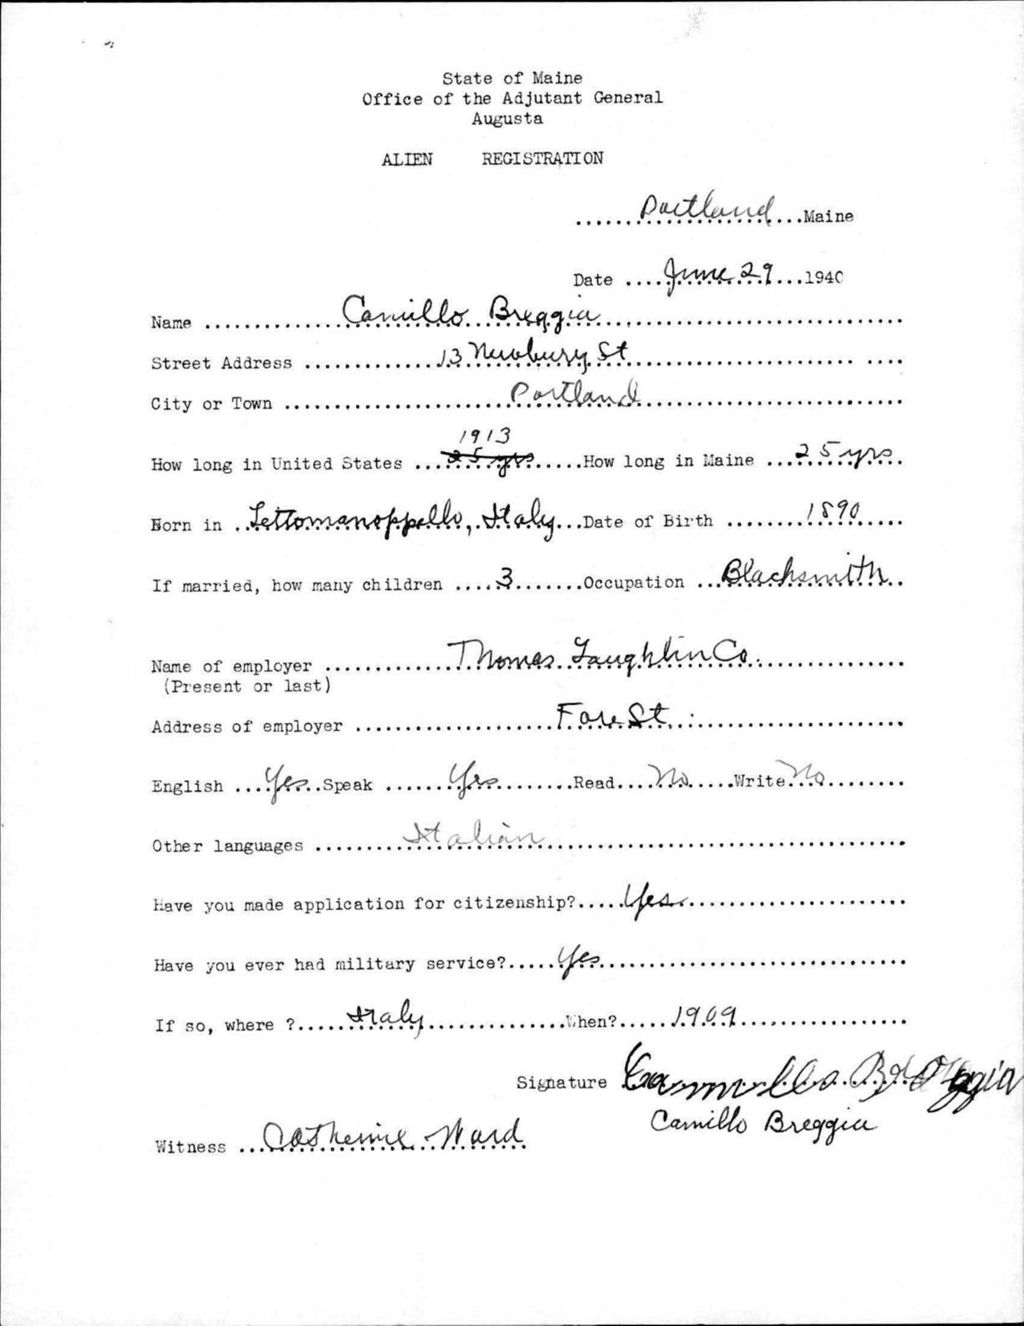 State of Maine
Office of the Adjutant General
Augusta
ALIEN REGISTRATION
Portland Maine
Date June 29 1940
Name Camillo Breggia
Street Address 13 Newbury St
City or Town Portland
1913
How long in United States 25 yrs How long in Maine 25 yrs
Born in Lettomanoppello, Italy Date of Birth 1890
If married, how many children 3 Occupation Blacksmith
Name of employer Thomas Laughlin Co.
(Present or last)
Address of employer Fore St.
English Yes Speak Yes Read No Write No
Other languages Italian
Have you made application for citizenship? Yes
Have you ever had military service? Yes
If so, where ? Italy When? 1909
Signature Cammillo Breggia
Camillo Breggia
Witness Catherine Ward